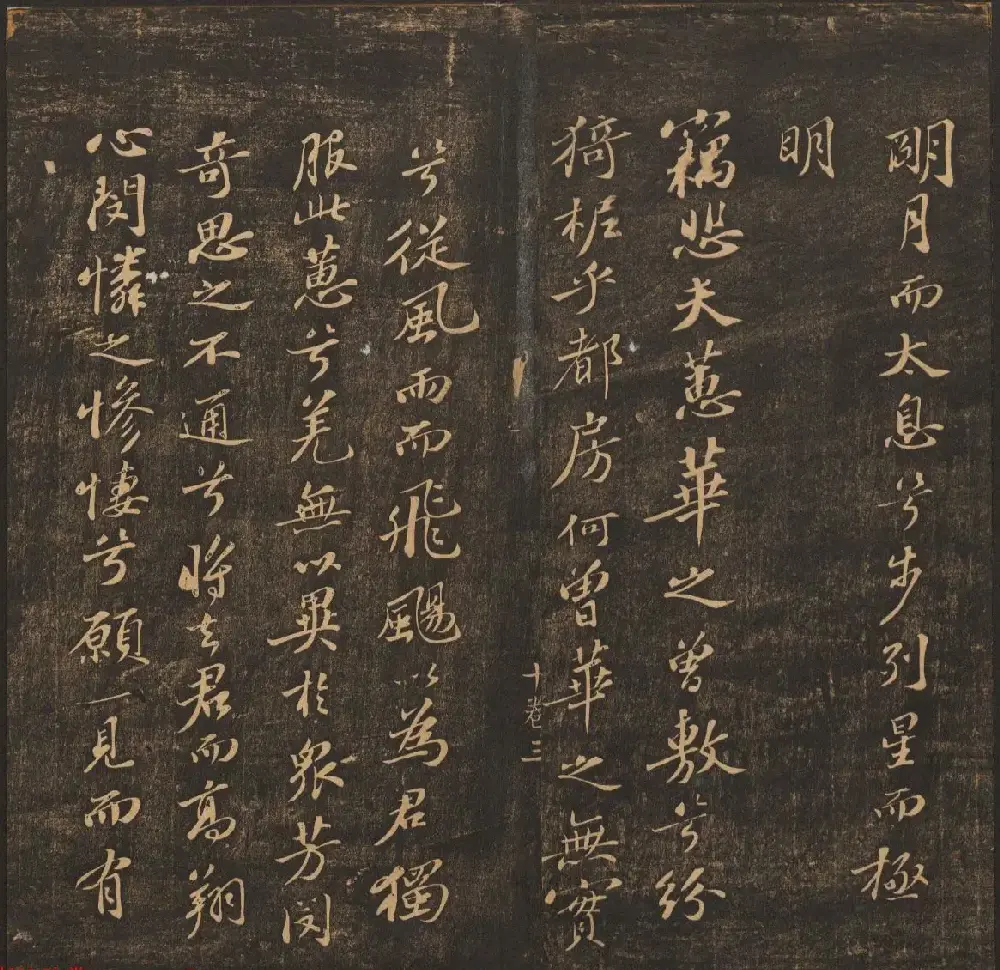 明月而太息兮步列星而極
明
竊悲夫蕙華之曾敷兮紛
猗柅乎都房何曾華之無實
十卷 三
兮從風雨而飛颺以為君獨
服此蕙兮羌無以異於眾芳閔
奇思之不通兮將去君而高翔
心閔憐之慘悽兮願一見而有